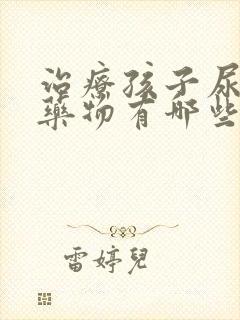 治療孩子尿
藥物有哪些
雷婷兒